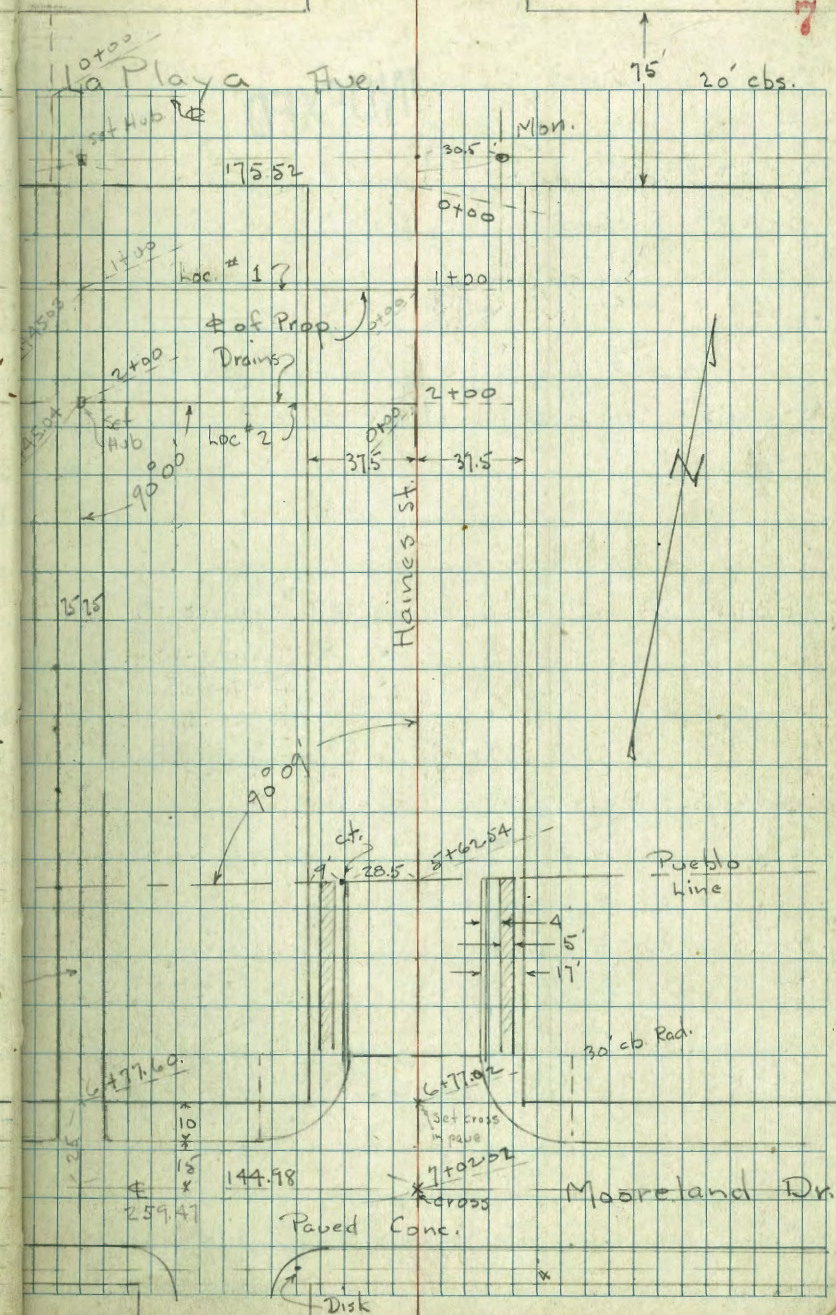 7
0+00
La Playa Ave.
75' 20' cbs.
℄
Set Hub
Mon.
30.5'
175.52
0+00
1+00
Loc. # 1
1+00
℄ of Prop.
0+00
Drains
2+00
2+00
Set
Hub
Loc # 2
0+00
90°00'
37.5
37.5
N
Haines St.
25 25
90°09'
c.t.
9' 28.5
5+62.54
Pueblo
Line
4'
5'
17'
30' cb. Rad.
6+77.60
6+77.02
Set cross
in pave
10
25
15
144.98
7+02.02
cross
Mooreland Dr.
℄
259.47
Paved Conc.
Disk